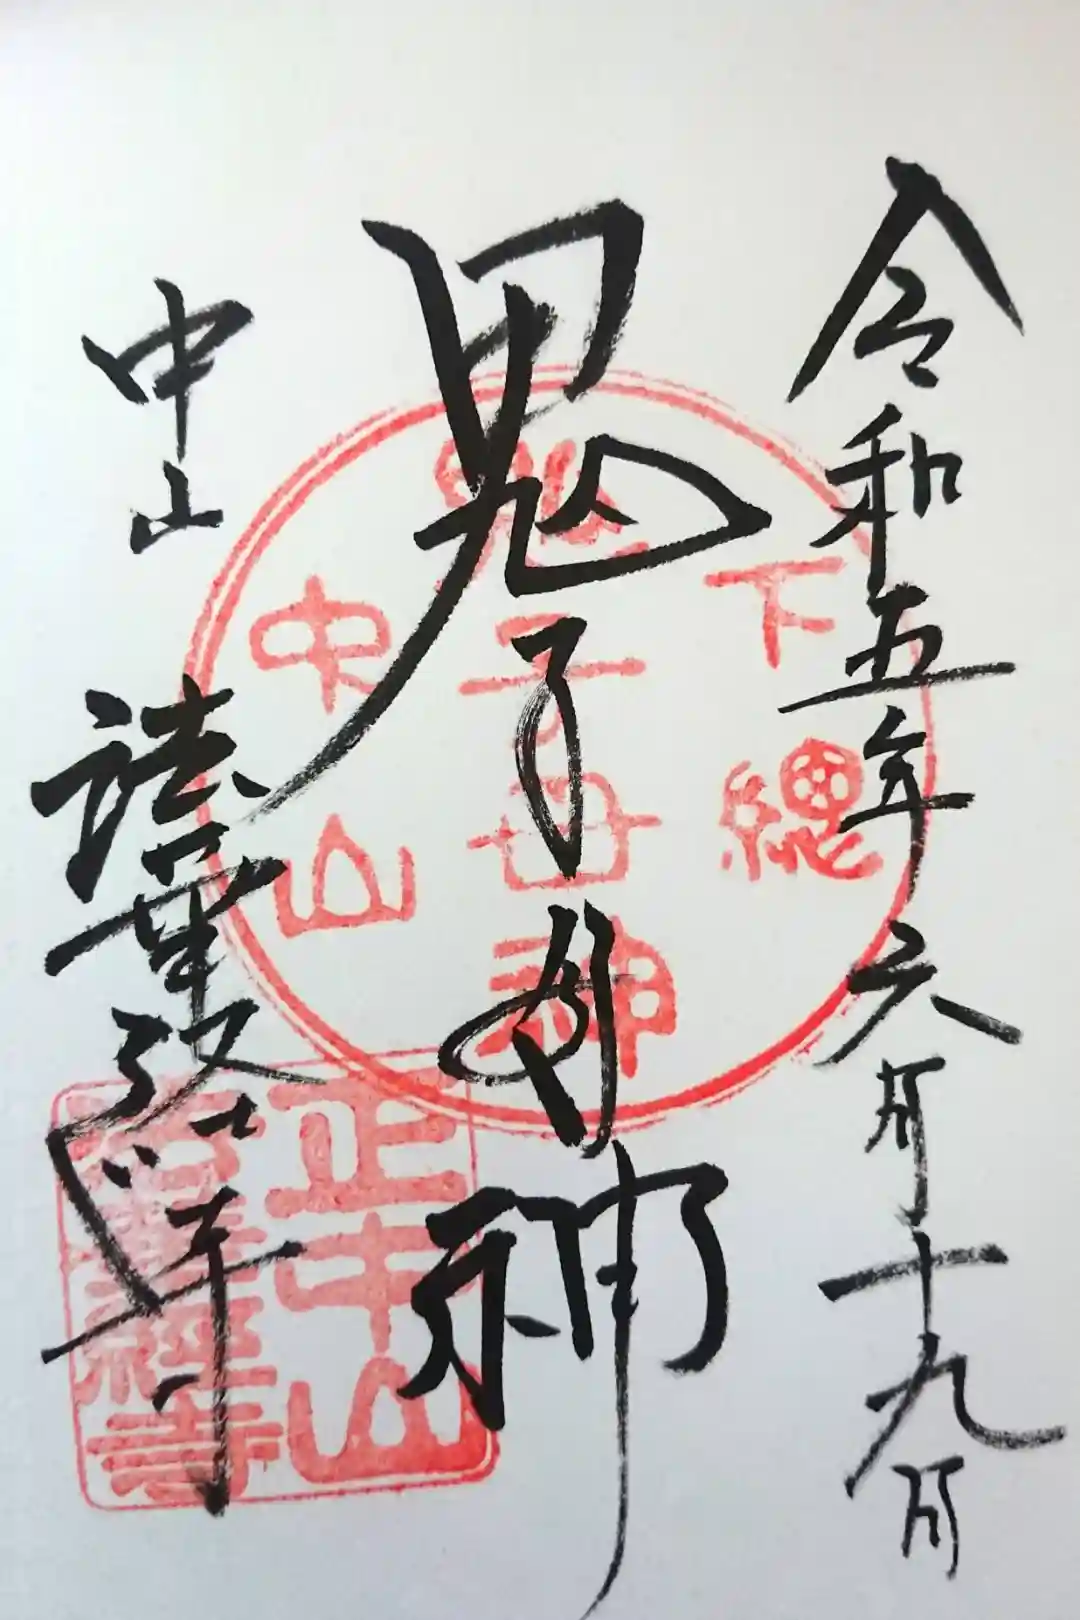 令和五年六月十九日
鬼子母神
中山
法華経寺
下總
鬼子母神
中山
正中山
法華経寺